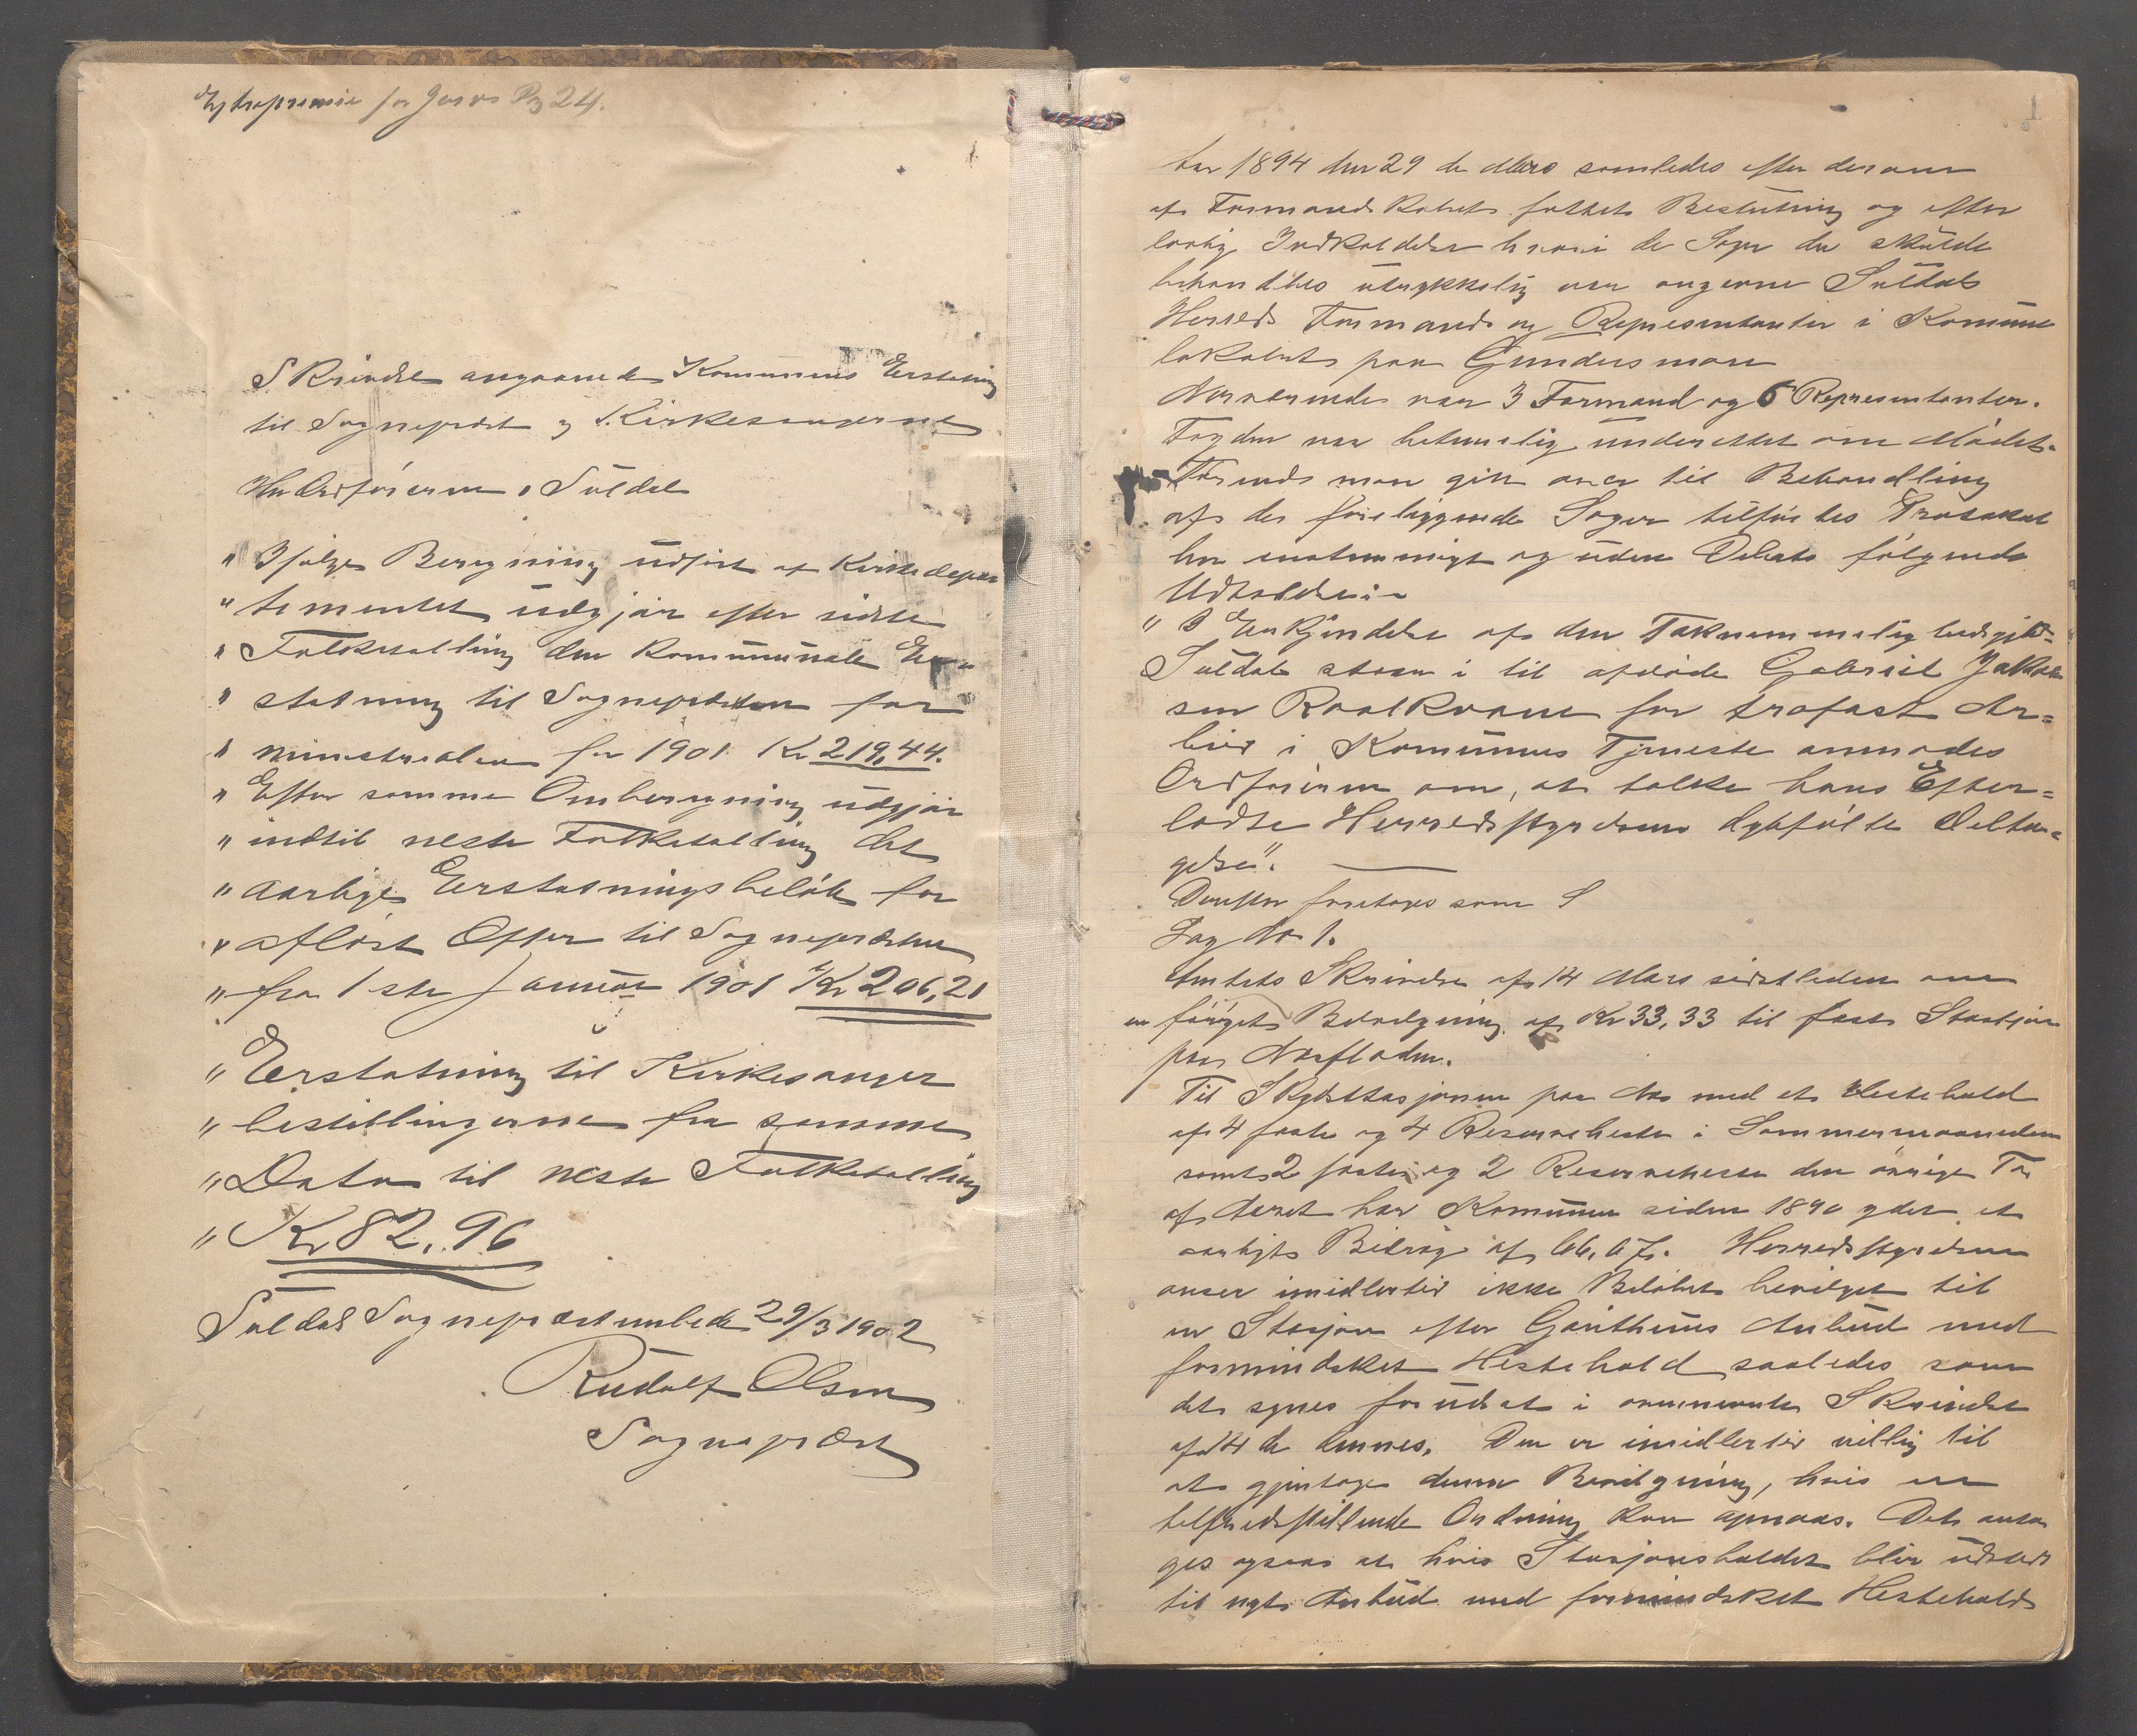 for Jerv Pg 24.
Skrivelse angaaende Kommunens Erstatning
til Sogneprest og Kirkesangerne
Hr Ordföreren i Suldal
" Ifølge Beregning udført af Kirkedepar
" tementet udgjør efter sidste
" Folketælling den kommunale Er-
" statning til Sognepresten for
" ministralier for 1901 Kr 219,44.
" Efter samme Omberegning udgjør
" indtil neste Folketælling det
" aarlige Erstatningsbeløb for
" afløst Offer til Sognepresten
" fra 1ste Januar 1901 Kr 206,21
" Erstatning til Kirkesanger
" bestillingerne fra samme
" Dato til neste Folketælling
" Kr 82,96
Suldal Sogneprestembede 29/3 1902
Rudolf Olsen
Sogneprest
1
Aar 1894 den 29de Mars samledes efter derom
af Formandskabet fattet Beslutning og efter
lovlig Indkaldelse hvori de Sager der skulde
behandles udtrykkelig var angivne Suldals
Herreds Formænd og Representanter i Komune
lokalet paa Gundersmoen
Nærværende var 3 Formænd og 6 Representanter.
Fogden var betimelig underettet om Mødet.
Forinds man gik over til Behandling
af de foreliggende Sager tilførtes Protokol
len enstemmigt og uden Debat følgende
Udtalelse:
" I Erkjendelse af den Taknemmelighedsgjæld
Suldal staar i til afdøde Gabriel Jakob
sen Roalkvam for trofast Ar=
beid i Komunens Tjeneste anmodes
Ordføreren om, at tolke hans Efter=
ladte Herredsstyrelsens dybfølte Delta=
gelse".
Derefter foretoges som
Sag No 1.
Amtets Skrivelse af 14 Mars sidstleden om
en forøget Bevilgning af Kr 33,33 til fast Skydsstasjon
paa Næsfladen.
Til Skydsstasjonen paa Næs med et Hestehold
af 4 faste og 4 Reserveheste i Sommermaanederne
samt 2 faste og 2 Reserveheste den øvrige Tid
af Aaret har Komunen siden 1890 ydet et
aarligt Bidrag af 66,67. Herredsstyrelsen
anser imidlertid ikke Beløbet bevilget til
en Stasjon efter Gauthuns Anbud med
formindsket Hestehold saaledes som
det synes forudsat i ovennævnte Skrivelse
af 14 de dennes. Den er imidlertid villig til
at gjentage denne Bevilgning, hvis en
tilfredsstillende Ordning kan opnaaes. Det anta
ges ogsaa at hvis Stasjonsholdet blir udsat
til nyt Anbud med formindsket Hestehold